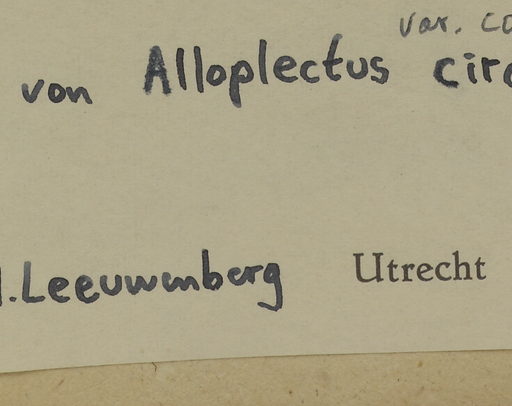 var.
von Alloplectus
Leeuwenberg Utrecht